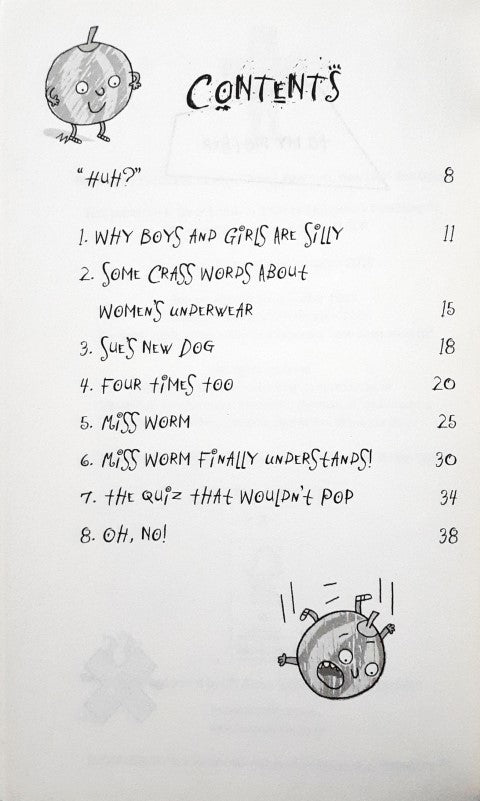 CONTENTS
"HUH?" 8
1. WHY BOYS AND GIRLS ARE SILLY 11
2. SOME CRASS WORDS ABOUT
WOMEN'S UNDERWEAR 15
3. SUE'S NEW DOG 18
4. FOUR TIMES TOO 20
5. MISS WORM 25
6. MISS WORM FINALLY UNDERSTANDS! 30
7. THE QUIZ THAT WOULDN'T POP 34
8. OH, NO! 38